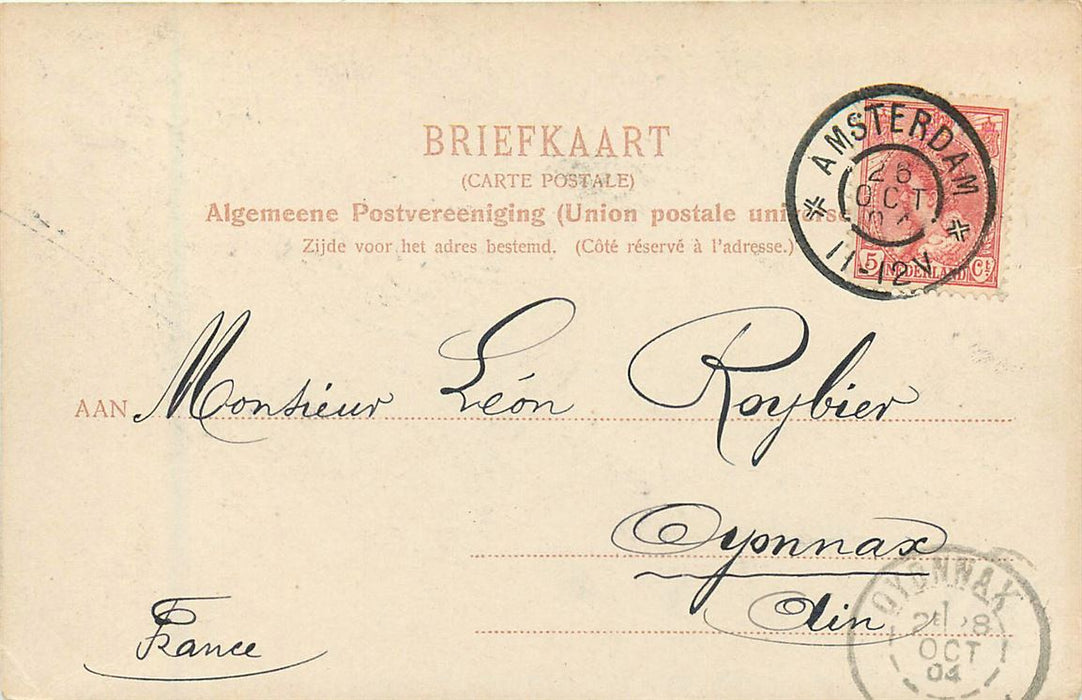 BRIEFKAART
(CARTE POSTALE)
Algemeene Postvereeniging (Union postale universe
Zijde voor het adres bestemd. (Côté réservé à l'adresse.)
AMSTERDAM
26
OCT
11-12V
5 NEDERLAND Ct
AAN Monsieur Léon Roybier
Oyonnax
Ain
France
OYONNAX
28
OCT
04